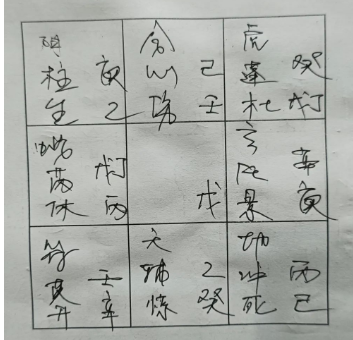 阴
柱 庚
生 乙
合
心 己
伤 壬
虎
蓬 癸
杜 戊丁
蛇
芮 戊丁
休 丙
戊
玄
任 辛
景 庚
符
英 壬
开 辛
天
辅 乙
惊 癸
地
冲 丙
死 己